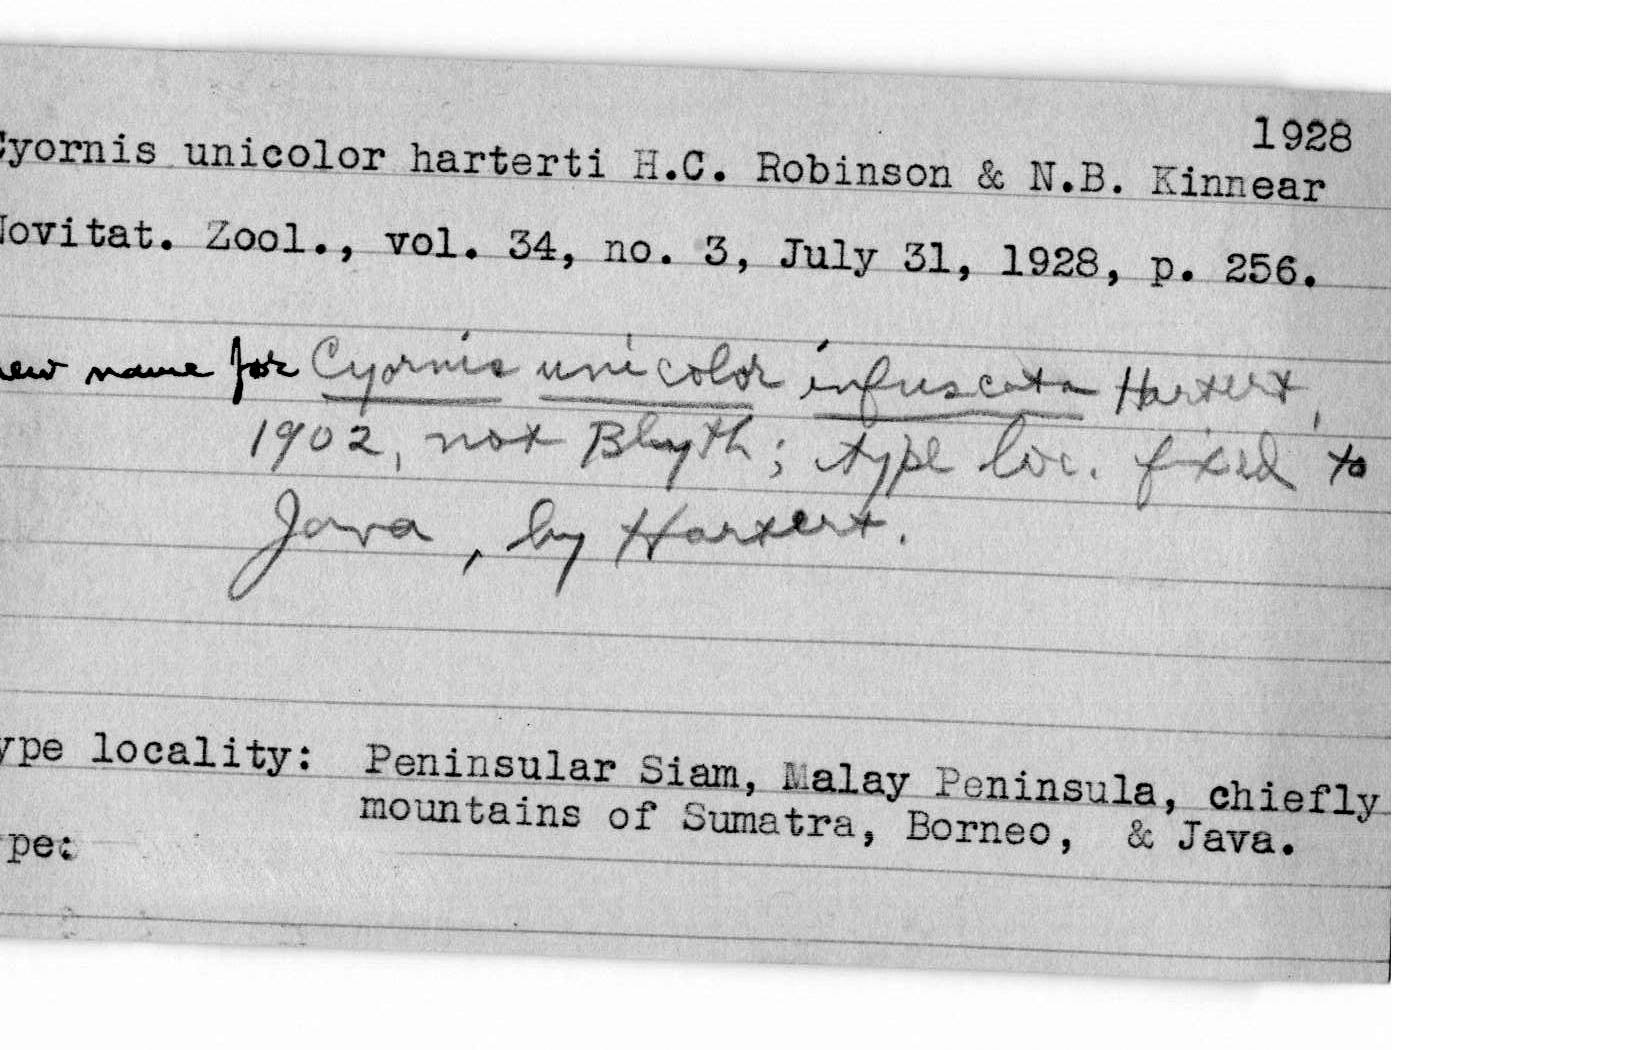 1928
Cyornis unicolor harterti H.C. Robinson & N.B. Kinnear
Novitat. Zool., vol. 34, no. 3, July 31, 1928, p. 256.
new name for Cyornis unicolor infuscata Hartert,
1902, not Blyth; type loc. fixed to
Java, by Hartert.
ype locality: Peninsular Siam, Malay Peninsula, chiefly
mountains of Sumatra, Borneo, & Java.
ype: